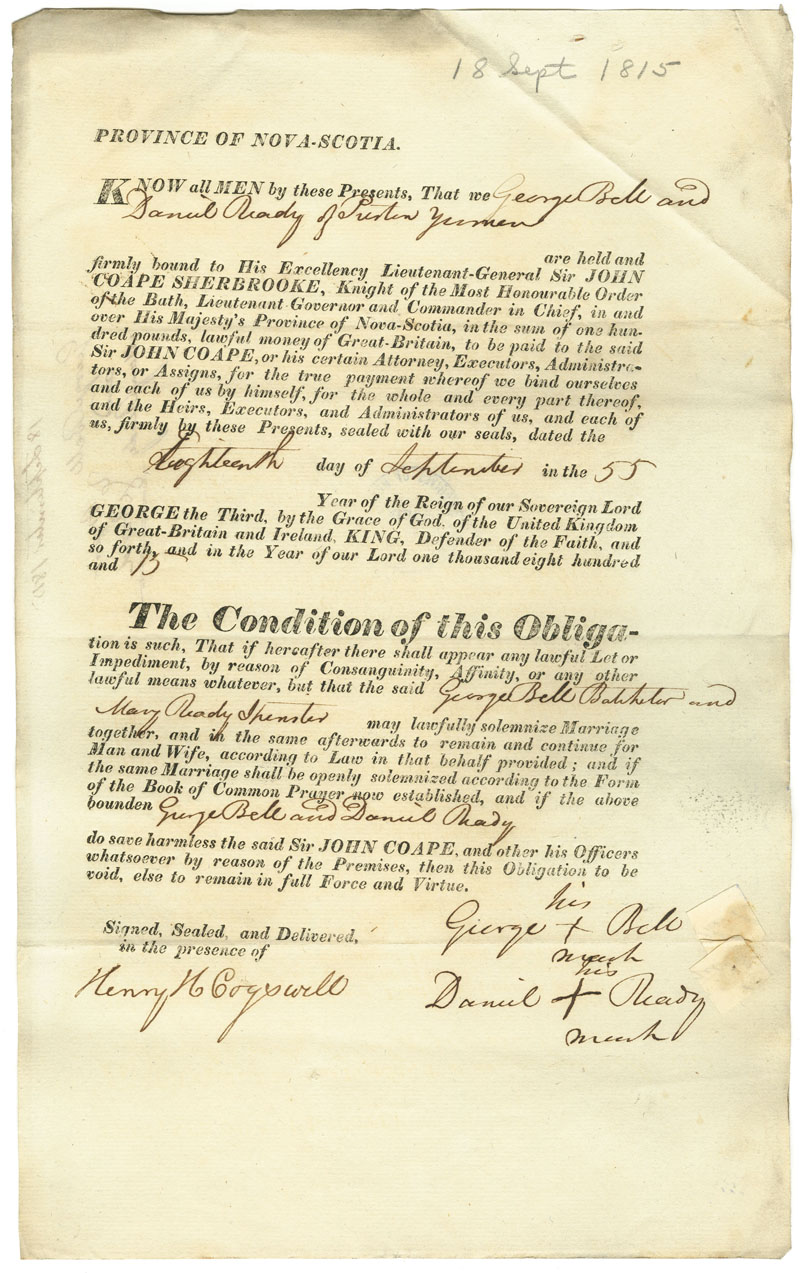 18 Sept 1815
PROVINCE OF NOVA-SCOTIA.
KNOW all MEN by these Presents, That we George Bell and
Daniel Ready of Preston Yeomen
are held and
firmly bound to His Excellency Lieutenant-General Sir JOHN
COAPE SHERBROOKE, Knight of the Most Honourable Order
of the Bath, Lieutenant Governor and Commander in Chief, in and
over His Majesty's Province of Nova-Scotia, in the sum of one hun-
dred pounds, lawful money of Great-Britain, to be paid to the said
Sir JOHN COAPE, or his certain Attorney, Executors, Administra-
tors, or Assigns, for the true payment whereof we bind ourselves
and each of us by himself, for the whole and every part thereof,
and the Heirs, Executors, and Administrators of us, and each of
us, firmly by these Presents, sealed with our seals, dated the
Eighteenth day of September in the 55
Year of the Reign of our Sovereign Lord
GEORGE the Third, by the Grace of God, of the United Kingdom
of Great-Britain and Ireland, KING, Defender of the Faith, and
so forth, and in the Year of our Lord one thousand eight hundred
and 15
The Condition of this Obliga-
tion is such, That if hereafter there shall appear any lawful Let or
Impediment, by reason of Consanguinity, Affinity, or any other
lawful means whatever, but that the said George Bell Batchelor and
Mary Ready Spinster may lawfully solemnize Marriage
together, and in the same afterwards to remain and continue for
Man and Wife, according to Law in that behalf provided; and if
the same Marriage shall be openly solemnized according to the Form
of the Book of Common Prayer now established, and if the above
bounden George Bell and Daniel Ready
do save harmless the said Sir JOHN COAPE, and other his Officers
whatsoever by reason of the Premises, then this Obligation to be
void, else to remain in full Force and Virtue.
Signed, Sealed, and Delivered,
in the presence of
Henry H Cogswell
his
George + Bell
mark
his
Daniel + Ready
mark